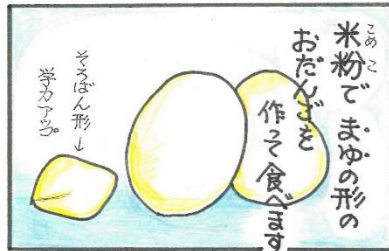 米粉で まゆの形の
こめこ
おだんごを
作って食べます
そろばん形→
学力アップ